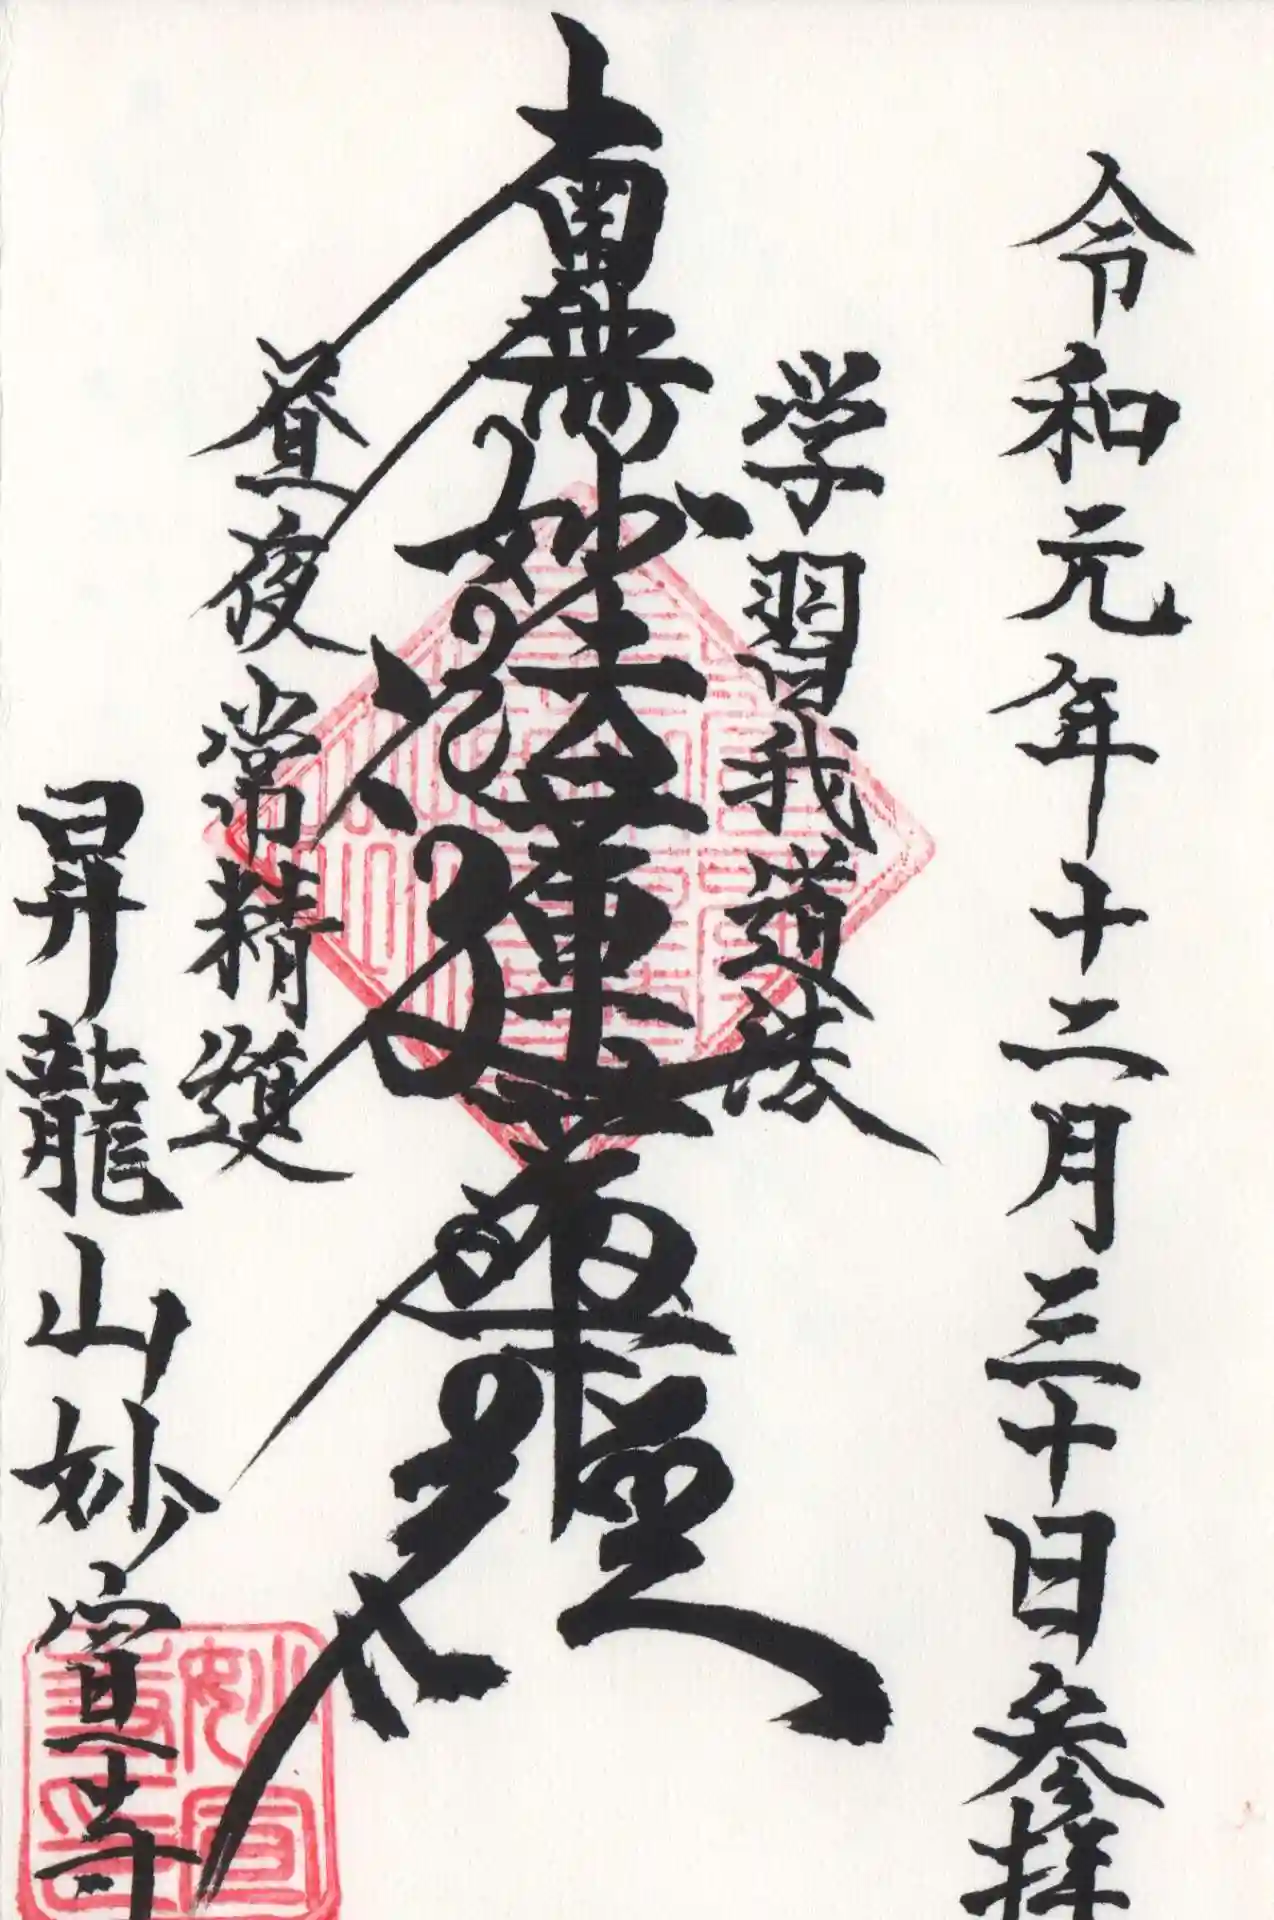 令和元年十二月三十日参拝
学習我道法
南無妙法蓮華経
昼夜常精進
昇龍山妙宣寺
妙宣
寺印